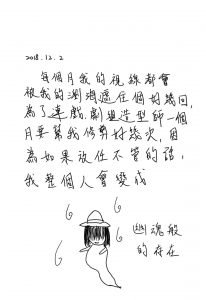 2018.12.2
每個月我的視線都會
被我的瀏海遮住個好幾回,
為了連戲,劇組造型師一個
月要幫我修剪好幾次,因
為如果放任不管的話,
我整個人會變成
幽魂般
的存在